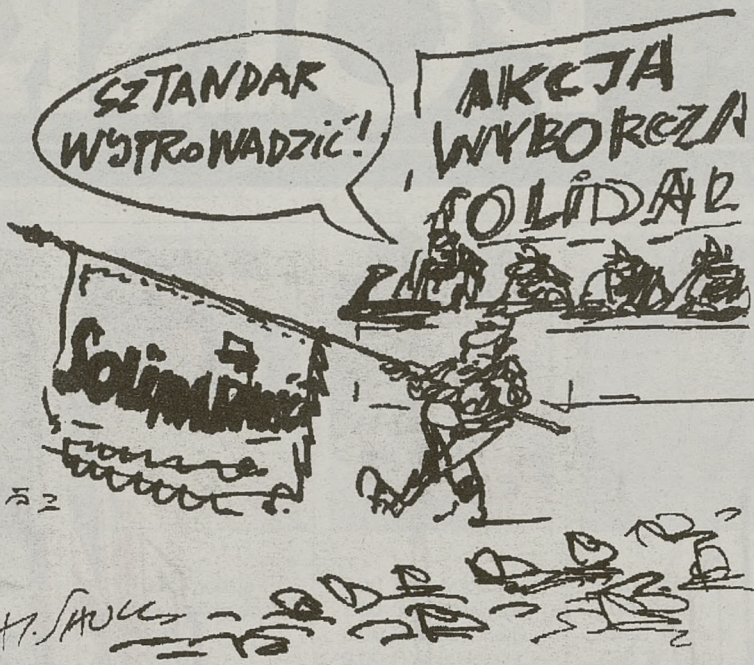 SZTANDAR
WYPROWADZIĆ!
AKCJA
WYBORCZA
SOLIDAR
Solidarność
H. SAUCK